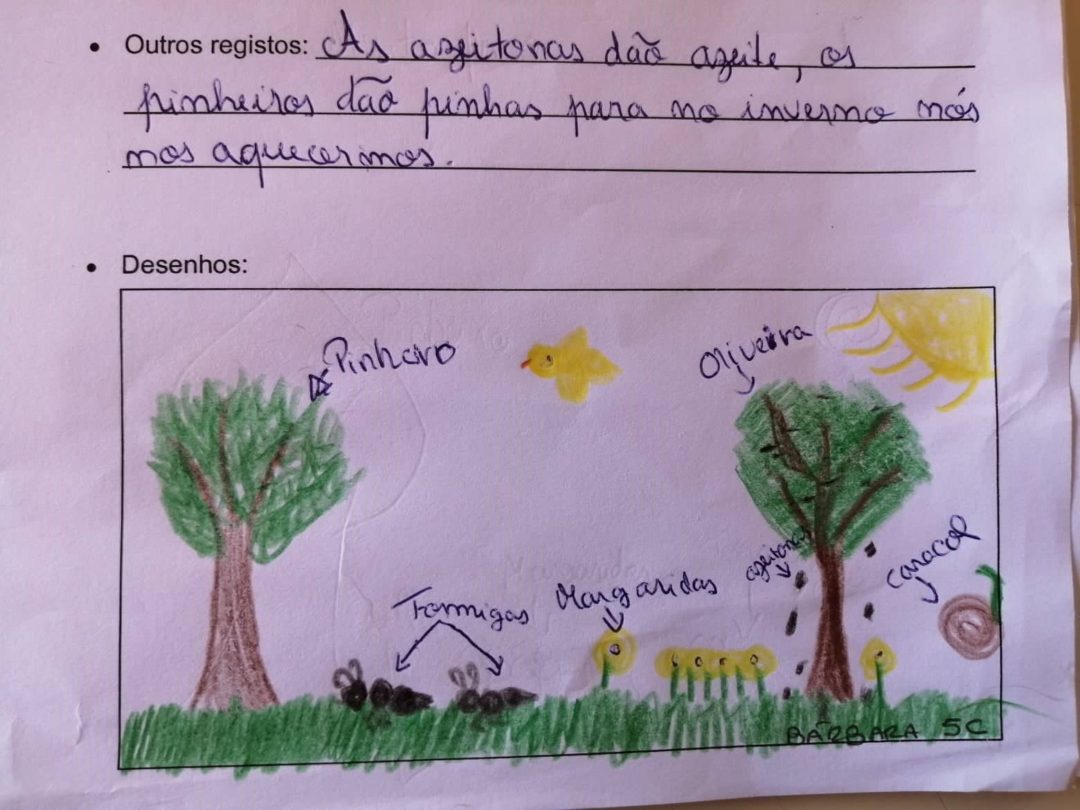 Outros registos: As azeitonas dão azeite, os
pinheiros dão pinhas para no inverno nós
nos aquecermos.
Desenhos:
Pinheiro
Oliveira
azeitonas
Caracol
Formigas
Margaridas
BÁRBARA 5C